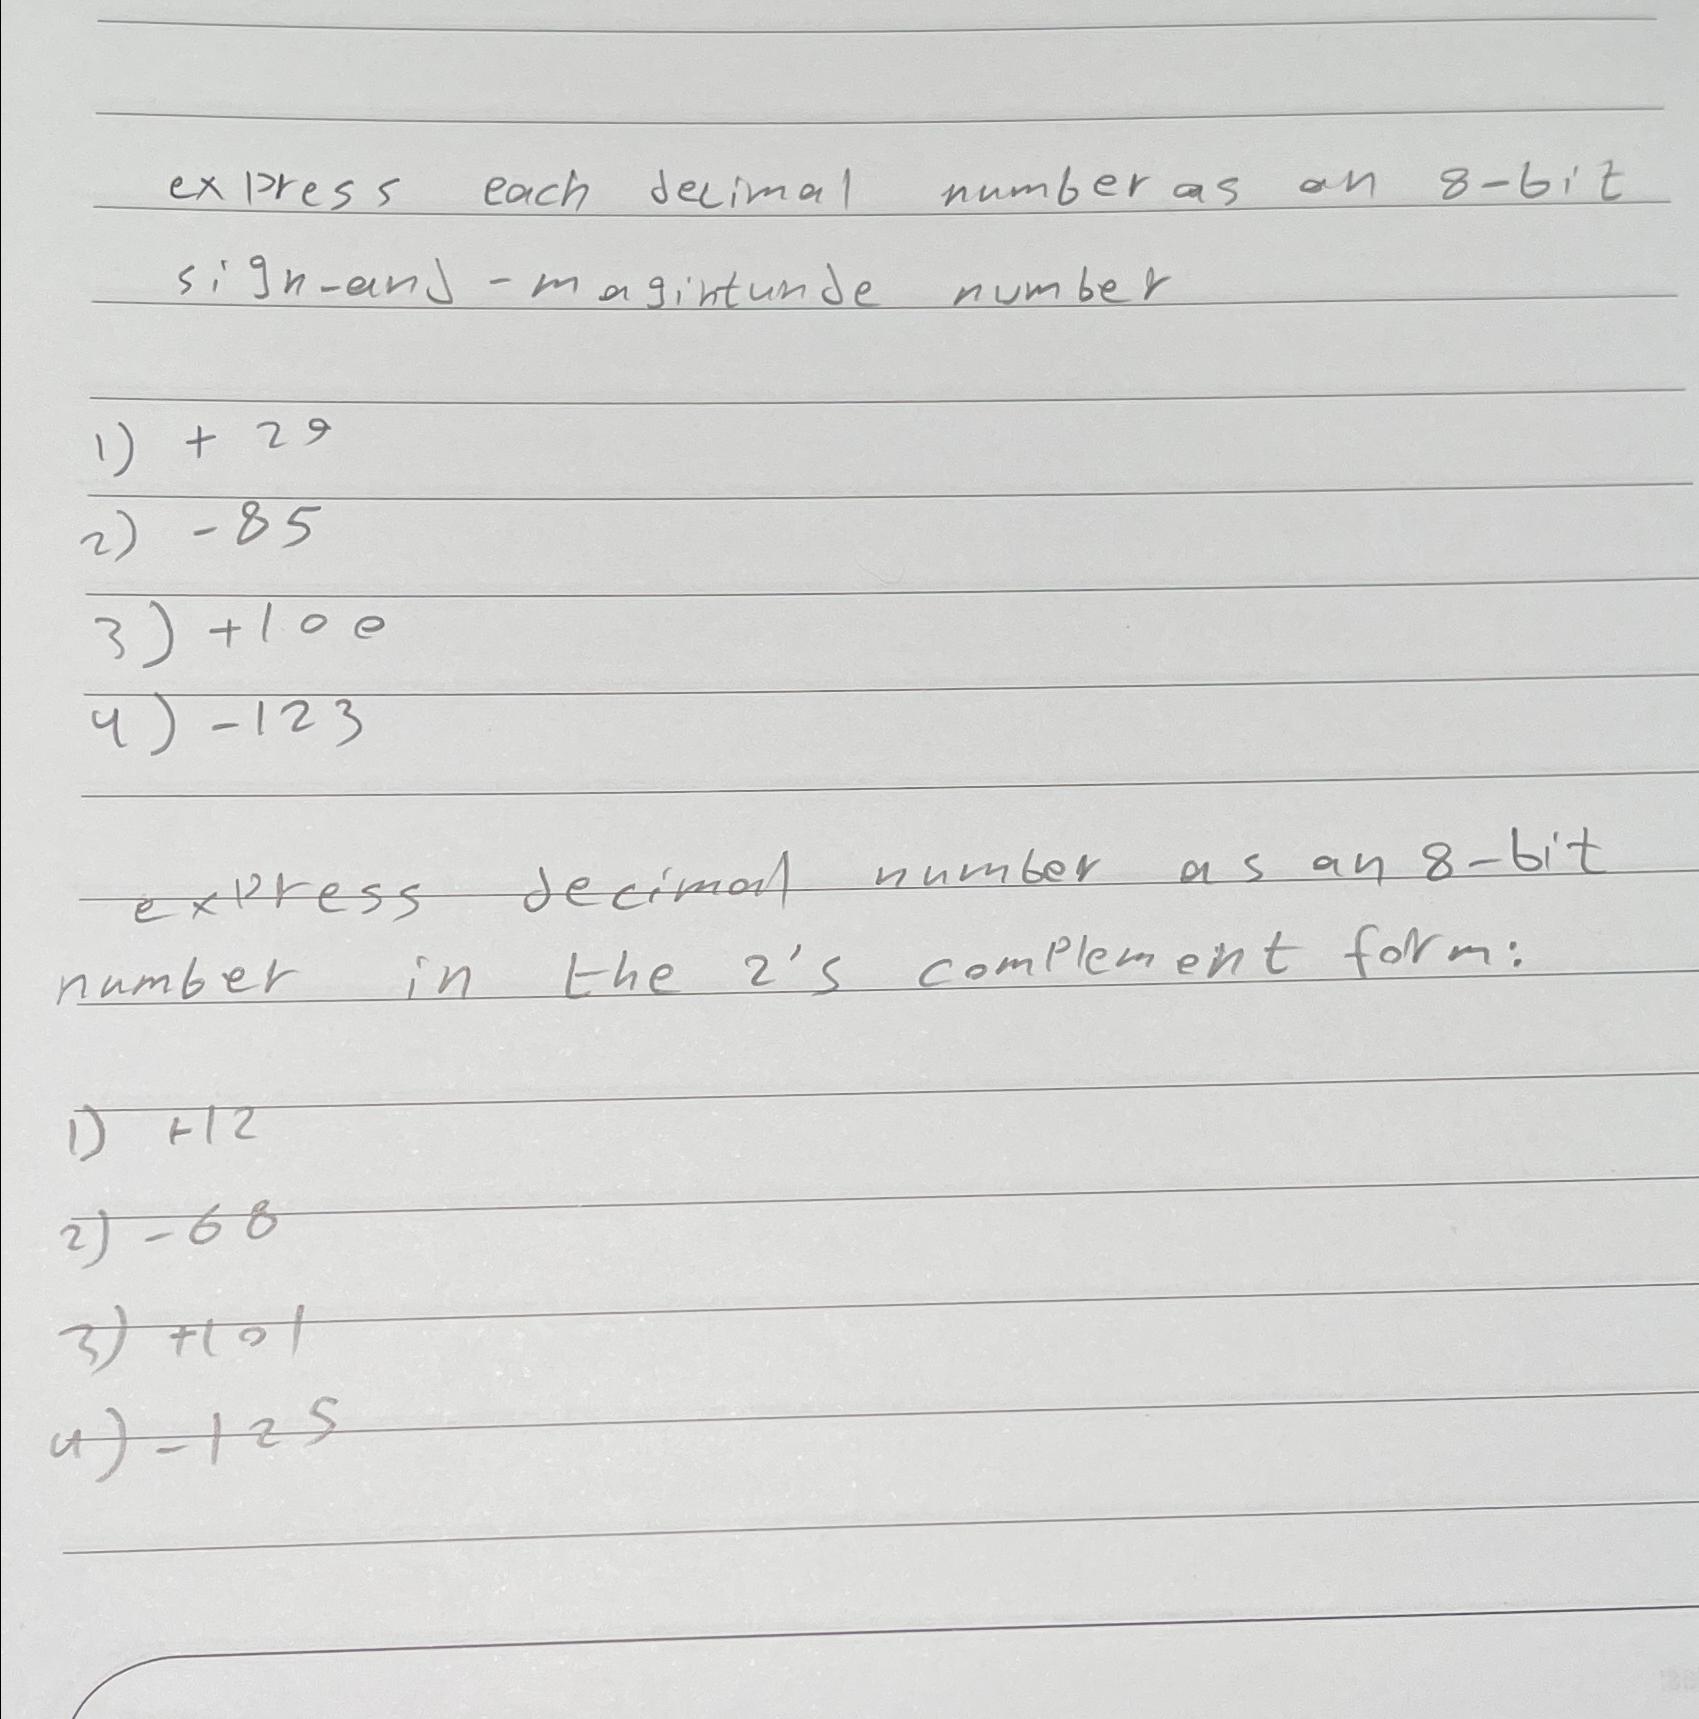 express each decimal number as an 8-bit
sign-and-magintunde number
1) + 29
2) -85
3) +100
4) -123
express decimal number as an 8-bit
number in the 2's complement form:
1) +12
2) -68
3) +101
4) -125